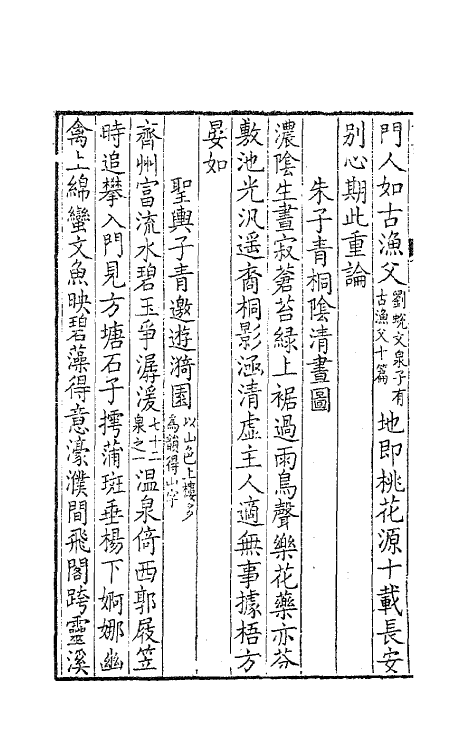 門人如古漁父劉蛻文泉子有古漁父十篇地即桃花源十載長安
別心期此重論
朱子青桐陰清晝圖
濃陰生晝寂蒼苔緑上裾過雨鳥聲樂花藥亦芬
敷池光汎遥裔桐影涵清虛主人適無事據梧方
晏如
聖與子青邀遊漪園以山色上樓多為韻得山字
齊州富流水碧玉爭潺湲七十二泉之一温泉倚西郭屐笠
時追攀入門見方塘石子摴蒲斑垂楊下婀娜幽
禽上綿蠻文魚映碧藻得意濠濮間飛閣跨靈溪